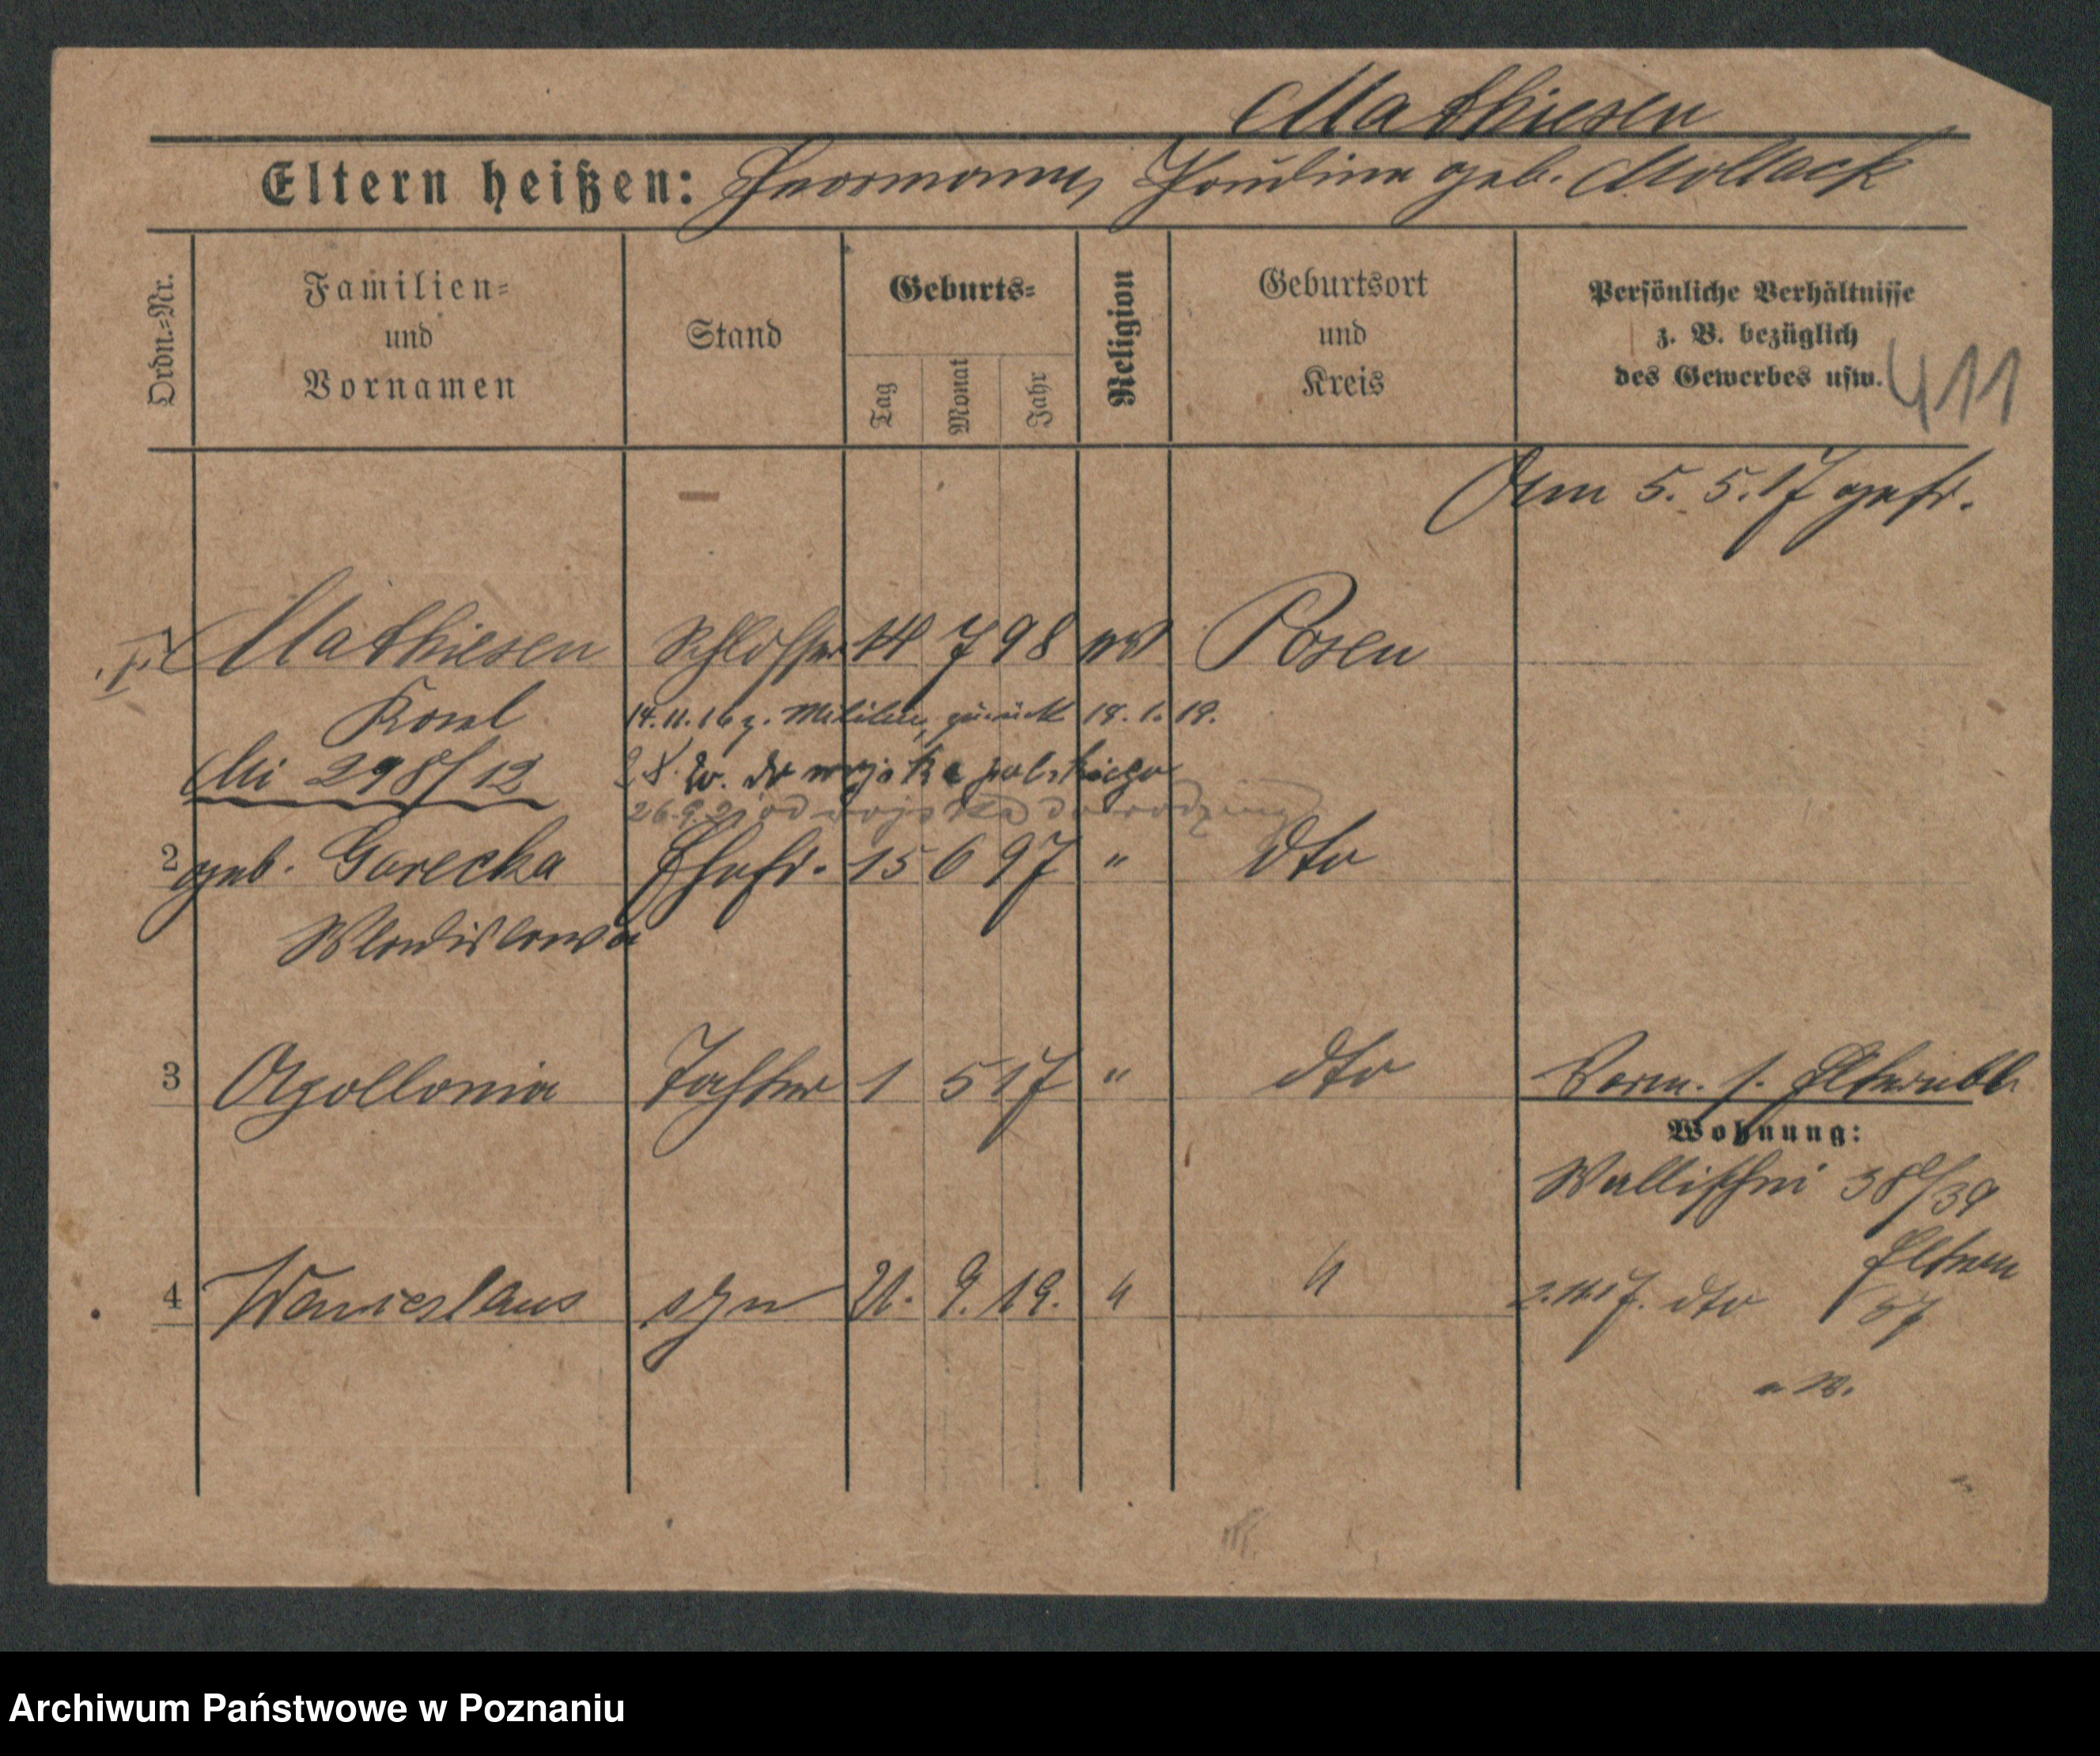 Mathiesen
Eltern heißen: Hermann, Paulina geb. Mollack
Ordn.=Nr.
Familien=
und
Vornamen
Stand
Geburts=
Tag
Monat
Jahr
Religion
Geburtsort
und
Kreis
Persönliche Verhältnisse
z. B. bezüglich
des Gewerbes usw.
411
Am 5. 5. 17 gehr.
Mathiesen Schlosser 14 7 98 Posen
Karl
14. 11. 16 z. Militär, zurück 18. 1. 19.
Mi 298/12
do wojska polskiego
od wojska do rodziny
2 geb. Gorecka Ehefr. 15 6 97 " dto
Wladislawa
3 Apollonia Tochter 1 5 17 " dto
Vorm. s. Elternbl.
Wohnung:
Wallischei 38/39
Eltern
4 Wenceslaus syn 21. 9. 19. " "
2. 11. 17. dto